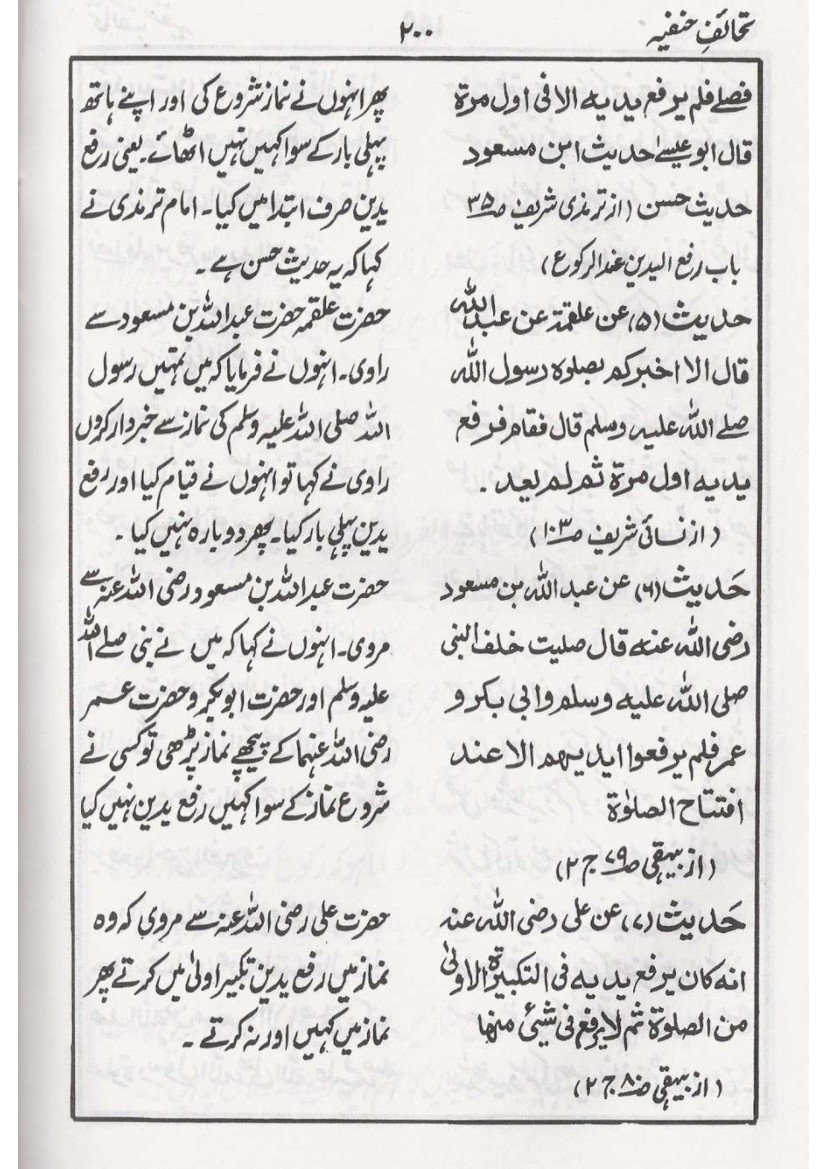 تحائف حنفیہ
۲۰۰
فصلے فلم یرفع یدیہ الا فی اول مرۃ
قال ابو عیسے حدیث ابن مسعود
حدیث حسن (از ترمذی شریف صـ۳۵
باب رفع الیدین عند الرکوع)
حدیث (۵) عن علقمۃ عن عبد اللہ
قال الا اخبرکم بصلوۃ رسول اللہ
صلے اللہ علیہ وسلم قال فقام فرفع
یدیہ اول مرۃ ثم لم یعد .
(از نسائی شریف صـ۱۰۳)
حَدیث (۶) عن عبد اللہ بن مسعود
رضی اللہ عنہ قال صلیت خلف النبی
صلی اللہ علیہ وسلم وابی بکر و
عمر فلم یرفعوا ایدیہم الا عند
افتتاح الصلوٰۃ
(از بیہقی صـ۷۹ ج ۲)
حَدیث (۷) عن علی رضی اللہ عنہ
انہ کان یرفع یدیہ فی التکبیرۃ الاولیٰ
من الصلوۃ ثم لا یرفع فی شیئ منہا
(از بیہقی صـ۸۰ ج ۲)
پھر انہوں نے نماز شروع کی اور اپنے ہاتھ
پہلی بار کے سوا کہیں نہیں اٹھائے۔ یعنی رفع
یدین صرف ابتدا میں کیا۔ امام ترمذی نے
کہا کہ یہ حدیث حسن ہے۔
حضرت علقمہ حضرت عبد اللہ بن مسعود سے
راوی۔ انہوں نے فرمایا کہ میں تمہیں رسول
اللہ صلی اللہ علیہ وسلم کی نماز سے خبردار کروں
راوی نے کہا تو انہوں نے قیام کیا اور رفع
یدین پہلی بار کیا۔ پھر دوبارہ نہیں کیا۔
حضرت عبد اللہ بن مسعود رضی اللہ عنہ سے
مروی۔ انہوں نے کہا کہ میں نے نبی صلے اللہ
علیہ وسلم اور حضرت ابوبکر و حضرت عمر
رضی اللہ عنہما کے پیچھے نماز پڑھی تو کسی نے
شروع نماز کے سوا کہیں رفع یدین نہیں کیا
حضرت علی رضی اللہ عنہ سے مروی کہ وہ
نماز میں رفع یدین تکبیر اولیٰ میں کرتے پھر
نماز میں کہیں اور نہ کرتے۔